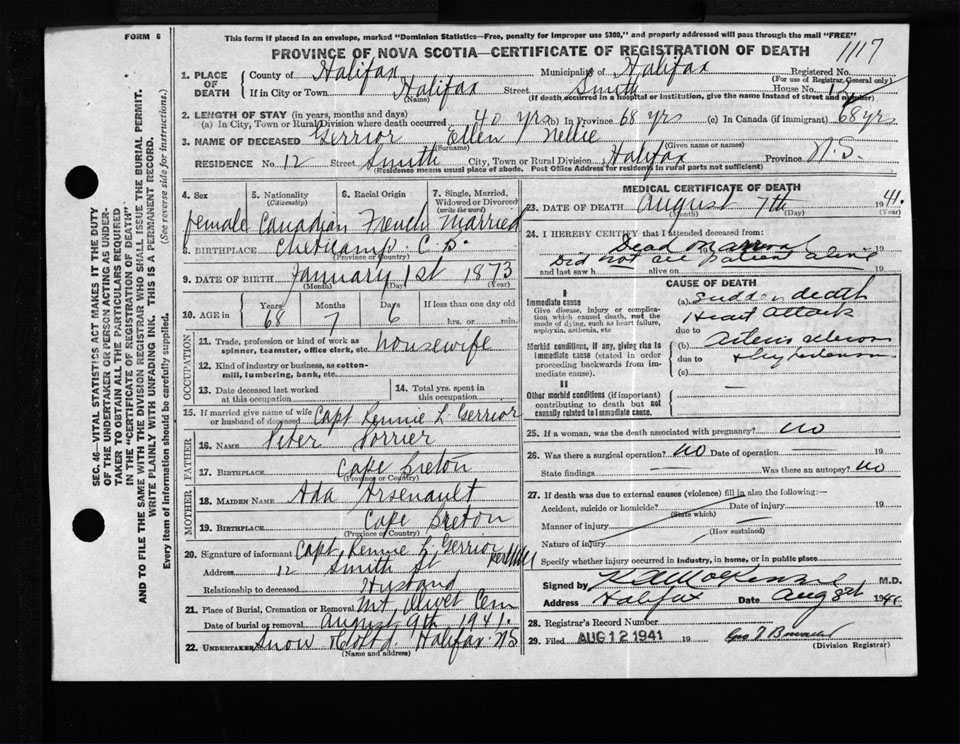 FORM 6
This form if placed in an envelope, marked "Dominion Statistics—Free, penalty for improper use $300," and properly addressed will pass through the mail "FREE"
PROVINCE OF NOVA SCOTIA—CERTIFICATE OF REGISTRATION OF DEATH
1117
1. PLACE OF DEATH
County of Halifax Municipality of Halifax Registered No.
(For use of Registrar General only)
If in City or Town Halifax Street Smith House No. 12
(Name) (If death occurred in a hospital or institution, give the name instead of street and number)
2. LENGTH OF STAY (in years, months and days)
(a) In City, Town or Rural Division where death occurred 40 yrs (b) In Province 68 yrs (c) In Canada (if immigrant) 68 yrs
3. NAME OF DECEASED Gerrior Ellen Nellie
(Surname) (Given name or names)
RESIDENCE No. 12 Street Smith City, Town or Rural Division Halifax Province N.S.
(Residence means usual place of abode. Post Office Address for residents in rural parts not sufficient)
4. Sex
Female
5. Nationality
(Citizenship)
Canadian
6. Racial Origin
French
7. Single, Married, Widowed or Divorced
(write the word)
Married
8. BIRTHPLACE Cheticamp C.B.
(Province or Country)
9. DATE OF BIRTH January 1st 1873
(Month) (Day) (Year)
10. AGE in
Years Months Days If less than one day old
68 7 6 hrs. or min.
OCCUPATION
11. Trade, profession or kind of work as spinner, teamster, office clerk, etc. Housewife
12. Kind of industry or business, as cotton-mill, lumbering, bank, etc.
13. Date deceased last worked at this occupation
14. Total yrs. spent in this occupation
15. If married give name of wife or husband of deceased Capt Rennie L Gerrior
FATHER
16. NAME Peter Porrier
17. BIRTHPLACE Cape Breton
(Province or Country)
MOTHER
18. MAIDEN NAME Ada Arsenault
19. BIRTHPLACE Cape Breton
(Province or Country)
20. Signature of informant Capt Rennie L Gerrior
Address 12 Smith St
Relationship to deceased Husband
21. Place of Burial, Cremation or Removal Mt Olivet Cem
Date of burial or removal August 9th 1941.
22. UNDERTAKER Snow & Co Ltd. Halifax NS
(Name and address)
MEDICAL CERTIFICATE OF DEATH
23. DATE OF DEATH August 7th 1941.
(Month) (Day)
24. I HEREBY CERTIFY that I attended deceased from:
Dead on arrival
Did not see patient alive
and last saw h alive on 19
CAUSE OF DEATH
I
Immediate cause
Give disease, injury or complication which caused death, not the mode of dying, such as heart failure, asphyxia, asthenia, etc
(a) Sudden death
Heart attack
due to
Morbid conditions, if any, giving rise to immediate cause (stated in order proceeding backwards from immediate cause).
(b)
due to
(c)
II
Other morbid conditions (if important) contributing to death but not causally related to immediate cause.
25. If a woman, was the death associated with pregnancy? No
26. Was there a surgical operation? No Date of operation 19
State findings Was there an autopsy? No
27. If death was due to external causes (violence) fill in also the following:—
Accident, suicide or homicide? Date of injury 19
(State which)
Manner of injury
(How sustained)
Nature of injury
Specify whether injury occurred in industry, in home, or in public place
Signed by M.D.
Address Halifax Date Aug 8th 1941
28. Registrar's Record Number
29. Filed AUG 12 1941 19
(Division Registrar)
SEC. 46—VITAL STATISTICS ACT MAKES IT THE DUTY
OF THE UNDERTAKER OR PERSON ACTING AS UNDER-
TAKER TO OBTAIN ALL THE PARTICULARS REQUIRED
IN THE "CERTIFICATE OF REGISTRATION OF DEATH"
AND TO FILE THE SAME WITH THE DIVISION REGISTRAR WHO SHALL ISSUE THE BURIAL PERMIT.
WRITE PLAINLY WITH UNFADING INK. THIS IS A PERMANENT RECORD.
Every item of information should be carefully supplied. (See reverse side for instructions.)